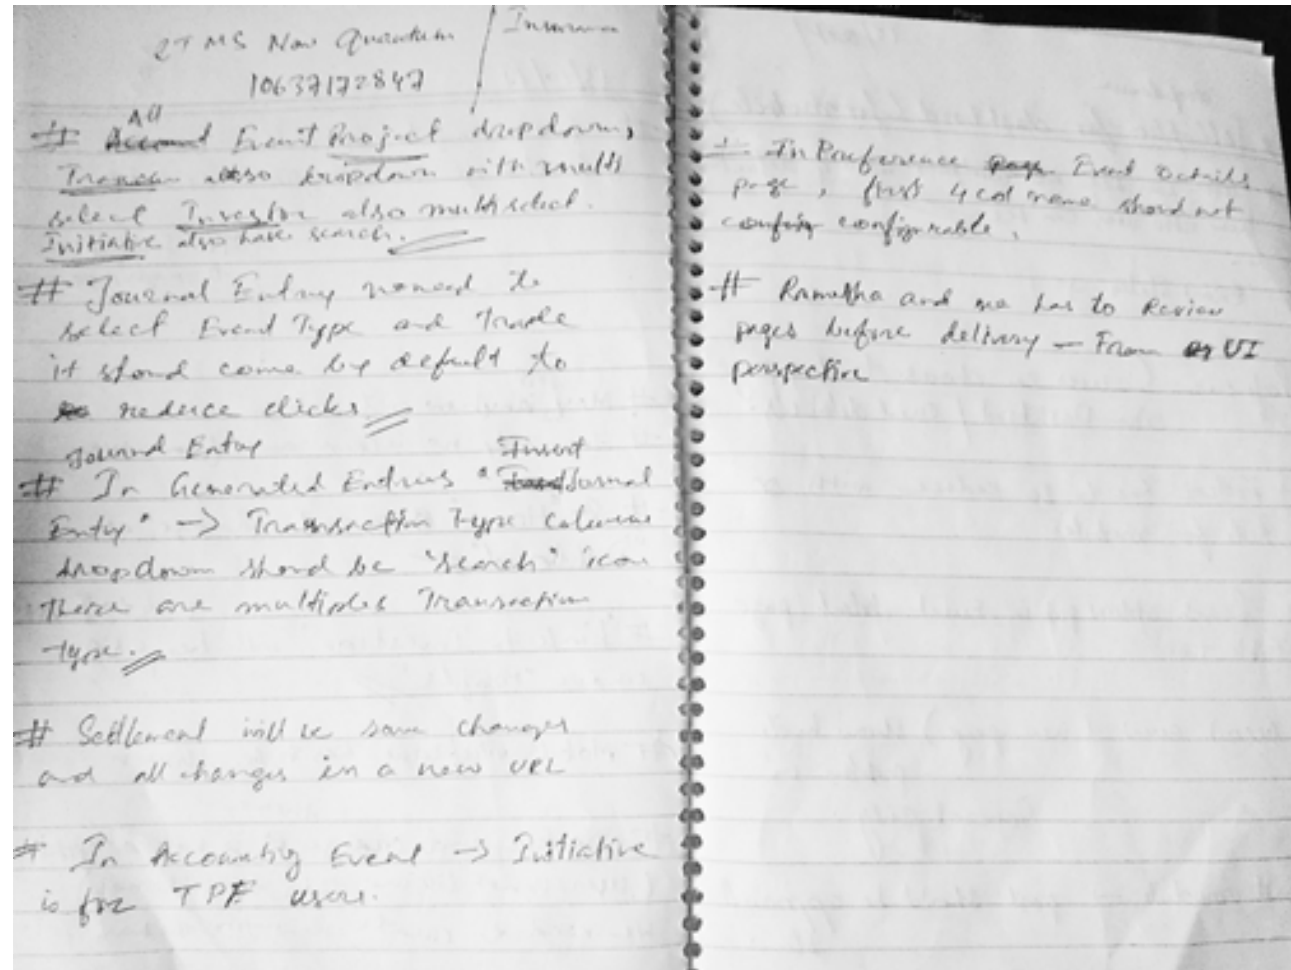 2T MS Nov Quantum
10637172847
All
# Event Project dropdown,
also dropdown with multi
select Investor also multiselect.
Initiative also have search.
# Journal Entry noneed to
select Event Type and Trade
it shoud come by default to
reduce clicks
Journal Entry
Insert
# In Generated Entries "Journal
Entry" -> Transaction Type column
dropdown shoud be "search" icon
There are multiples Transaction
Type.
# Settlement will be same changes
and all changes in a new URL
# In Accounting Event -> Initiative
is for TPF users.
# In Preference Event Details
page, first 4 col name shoud not
configurable.
# and me has to Review
pages before delivery - From UI
perspective